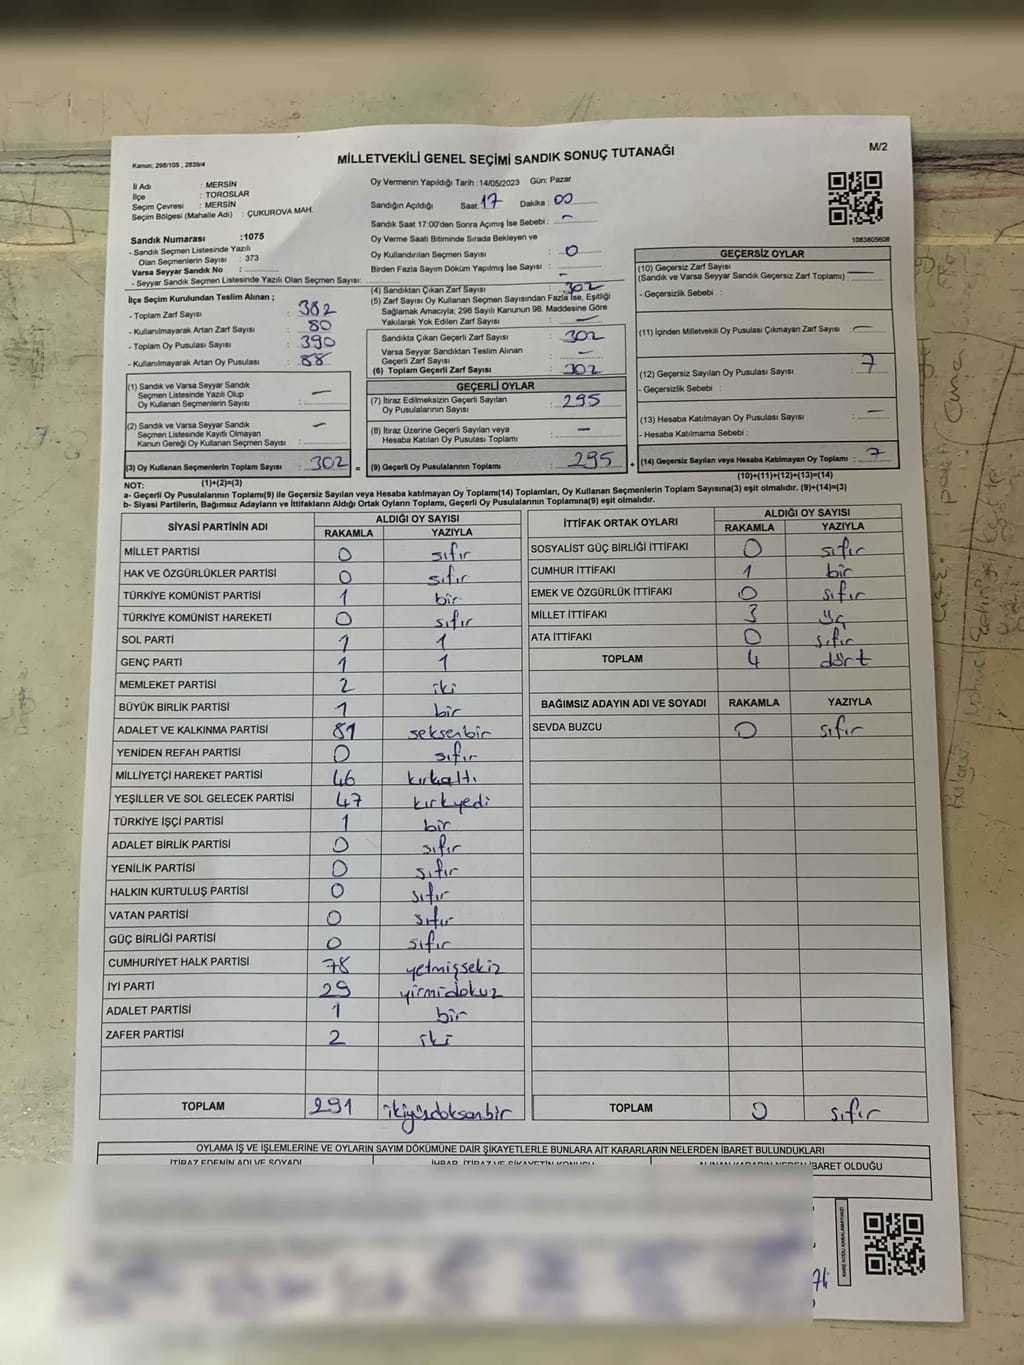 Kanun; 298/105 , 2839/4
MİLLETVEKİLİ GENEL SEÇİMİ SANDIK SONUÇ TUTANAĞI
M/2
İl Adı : MERSİN
İlçe : TOROSLAR
Seçim Çevresi : MERSİN
Seçim Bölgesi (Mahalle Adı) : ÇUKUROVA MAH.
Sandık Numarası :1075
- Sandık Seçmen Listesinde Yazılı
Olan Seçmenlerin Sayısı : 373
Varsa Seyyar Sandık No :
- Seyyar Sandık Seçmen Listesinde Yazılı Olan Seçmen Sayısı:
İlçe Seçim Kurulundan Teslim Alınan ;
- Toplam Zarf Sayısı : 382
- Kullanılmayarak Artan Zarf Sayısı : 80
- Toplam Oy Pusulası Sayısı : 390
- Kullanılmayarak Artan Oy Pusulası : 88
(1) Sandık ve Varsa Seyyar Sandık
Seçmen Listesinde Yazılı Olup
Oy Kullanan Seçmenlerin Sayısı : —
(2) Sandık ve Varsa Seyyar Sandık
Seçmen Listesinde Kayıtlı Olmayan
Kanun Gereği Oy Kullanan Seçmen Sayısı : —
(3) Oy Kullanan Seçmenlerin Toplam Sayısı : 302 =
(1)+(2)=(3)
Oy Vermenin Yapıldığı Tarih : 14/05/2023 Gün: Pazar
Sandığın Açıldığı Saat : 17 Dakika : 00
Sandık Saat 17:00'den Sonra Açılmış İse Sebebi : —
Oy Verme Saati Bitiminde Sırada Bekleyen ve
Oy Kullandırılan Seçmen Sayısı : 0
Birden Fazla Sayım Dökümü Yapılmış İse Sayısı : —
(4) Sandıktan Çıkan Zarf Sayısı : 302
(5) Zarf Sayısı Oy Kullanan Seçmen Sayısından Fazla İse, Eşitliği
Sağlamak Amacıyla; 298 Sayılı Kanunun 98. Maddesine Göre
Yakılarak Yok Edilen Zarf Sayısı : —
Sandıkta Çıkan Geçerli Zarf Sayısı : 302
Varsa Seyyar Sandıktan Teslim Alınan
Geçerli Zarf Sayısı : —
(6) Toplam Geçerli Zarf Sayısı : 302
GEÇERLİ OYLAR
(7) İtiraz Edilmeksizin Geçerli Sayılan
Oy Pusulalarının Sayısı : 295
(8) İtiraz Üzerine Geçerli Sayılan veya
Hesaba Katılan Oy Pusulası Toplamı : —
(9) Geçerli Oy Pusulalarının Toplamı : 295 +
1083805606
GEÇERSİZ OYLAR
(10) Geçersiz Zarf Sayısı
(Sandık ve Varsa Seyyar Sandık Geçersiz Zarf Toplamı) : —
- Geçersizlik Sebebi :
(11) İçinden Milletvekili Oy Pusulası Çıkmayan Zarf Sayısı : —
(12) Geçersiz Sayılan Oy Pusulası Sayısı : 7
- Geçersizlik Sebebi :
(13) Hesaba Katılmayan Oy Pusulası Sayısı : —
- Hesaba Katılmama Sebebi :
(14) Geçersiz Sayılan veya Hesaba Katılmayan Oy Toplamı : 7
(10)+(11)+(12)+(13)=(14)
NOT:
a- Geçerli Oy Pusulalarının Toplamı(9) ile Geçersiz Sayılan veya Hesaba katılmayan Oy Toplamı(14) Toplamları, Oy Kullanan Seçmenlerin Toplam Sayısına(3) eşit olmalıdır. (9)+(14)=(3)
b- Siyasi Partilerin, Bağımsız Adayların ve İttifakların Aldığı Ortak Oyların Toplamı, Geçerli Oy Pusulalarının Toplamına(9) eşit olmalıdır.
SİYASİ PARTİNİN ADI ALDIĞI OY SAYISI
RAKAMLA YAZIYLA
MİLLET PARTİSİ 0 sıfır
HAK VE ÖZGÜRLÜKLER PARTİSİ 0 sıfır
TÜRKİYE KOMÜNİST PARTİSİ 1 bir
TÜRKİYE KOMÜNİST HAREKETİ 0 sıfır
SOL PARTİ 1 1
GENÇ PARTİ 1 1
MEMLEKET PARTİSİ 2 iki
BÜYÜK BİRLİK PARTİSİ 1 bir
ADALET VE KALKINMA PARTİSİ 81 seksenbir
YENİDEN REFAH PARTİSİ 0 sıfır
MİLLİYETÇİ HAREKET PARTİSİ 46 kırkaltı
YEŞİLLER VE SOL GELECEK PARTİSİ 47 kırkyedi
TÜRKİYE İŞÇİ PARTİSİ 1 bir
ADALET BİRLİK PARTİSİ 0 sıfır
YENİLİK PARTİSİ 0 sıfır
HALKIN KURTULUŞ PARTİSİ 0 sıfır
VATAN PARTİSİ 0 sıfır
GÜÇ BİRLİĞİ PARTİSİ 0 sıfır
CUMHURİYET HALK PARTİSİ 78 yetmişsekiz
İYİ PARTİ 29 yirmidokuz
ADALET PARTİSİ 1 bir
ZAFER PARTİSİ 2 iki
TOPLAM 291 ikiyüzdoksanbir
İTTİFAK ORTAK OYLARI ALDIĞI OY SAYISI
RAKAMLA YAZIYLA
SOSYALİST GÜÇ BİRLİĞİ İTTİFAKI 0 sıfır
CUMHUR İTTİFAKI 1 bir
EMEK VE ÖZGÜRLÜK İTTİFAKI 0 sıfır
MİLLET İTTİFAKI 3 üç
ATA İTTİFAKI 0 sıfır
TOPLAM 4 dört
BAĞIMSIZ ADAYIN ADI VE SOYADI RAKAMLA YAZIYLA
SEVDA BUZCU 0 sıfır
TOPLAM 0 sıfır
OYLAMA İŞ VE İŞLEMLERİNE VE OYLARIN SAYIM DÖKÜMÜNE DAİR ŞİKAYETLERLE BUNLARA AİT KARARLARIN NELERDEN İBARET BULUNDUKLARI
İTİRAZ EDENİN ADI VE SOYADI İHBAR, İTİRAZ VE ŞİKAYETİN KONUSU ALINAN KARARIN NEDEN İBARET OLDUĞU
KARE KODU KARALAMAYINIZ!